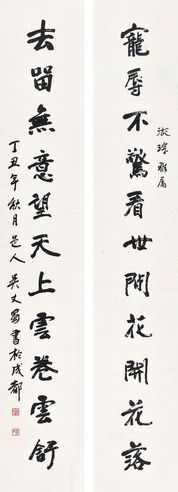 寵辱不驚看世間花開花落
淑琼雅属
去留無意望天上雲卷雲舒
丁丑年秋月邑人吴丈蜀書於成都